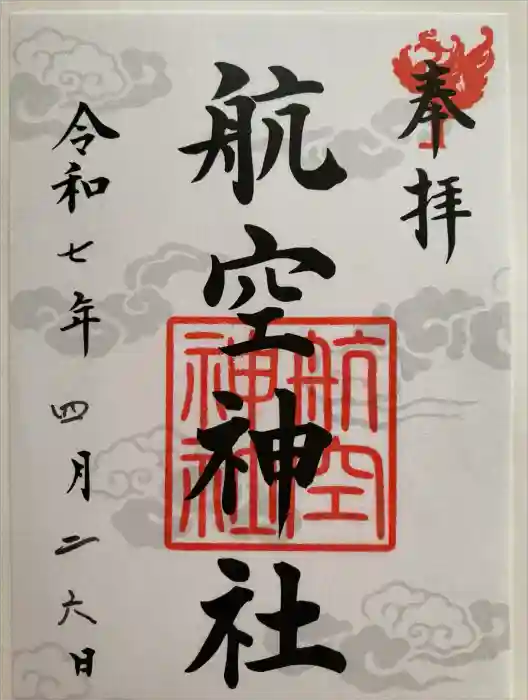 奉拝
航空神社
航空
神社
令和七年四月二六日